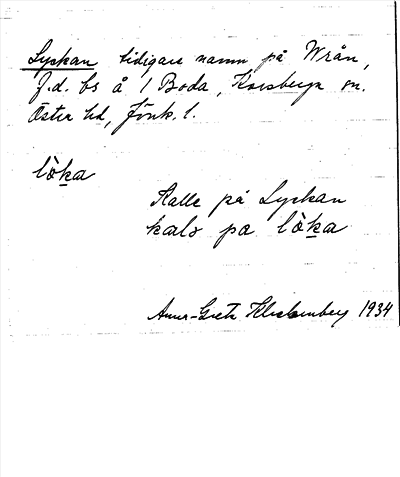 Lyckan tidigare namn på Wrån,
f.d. bs å 1 Boda, Korsberga sn.
Östra hd, Jönk. l.
lòka
Kalle på Lyckan
kals pa lòka
Anna-Greta 1934